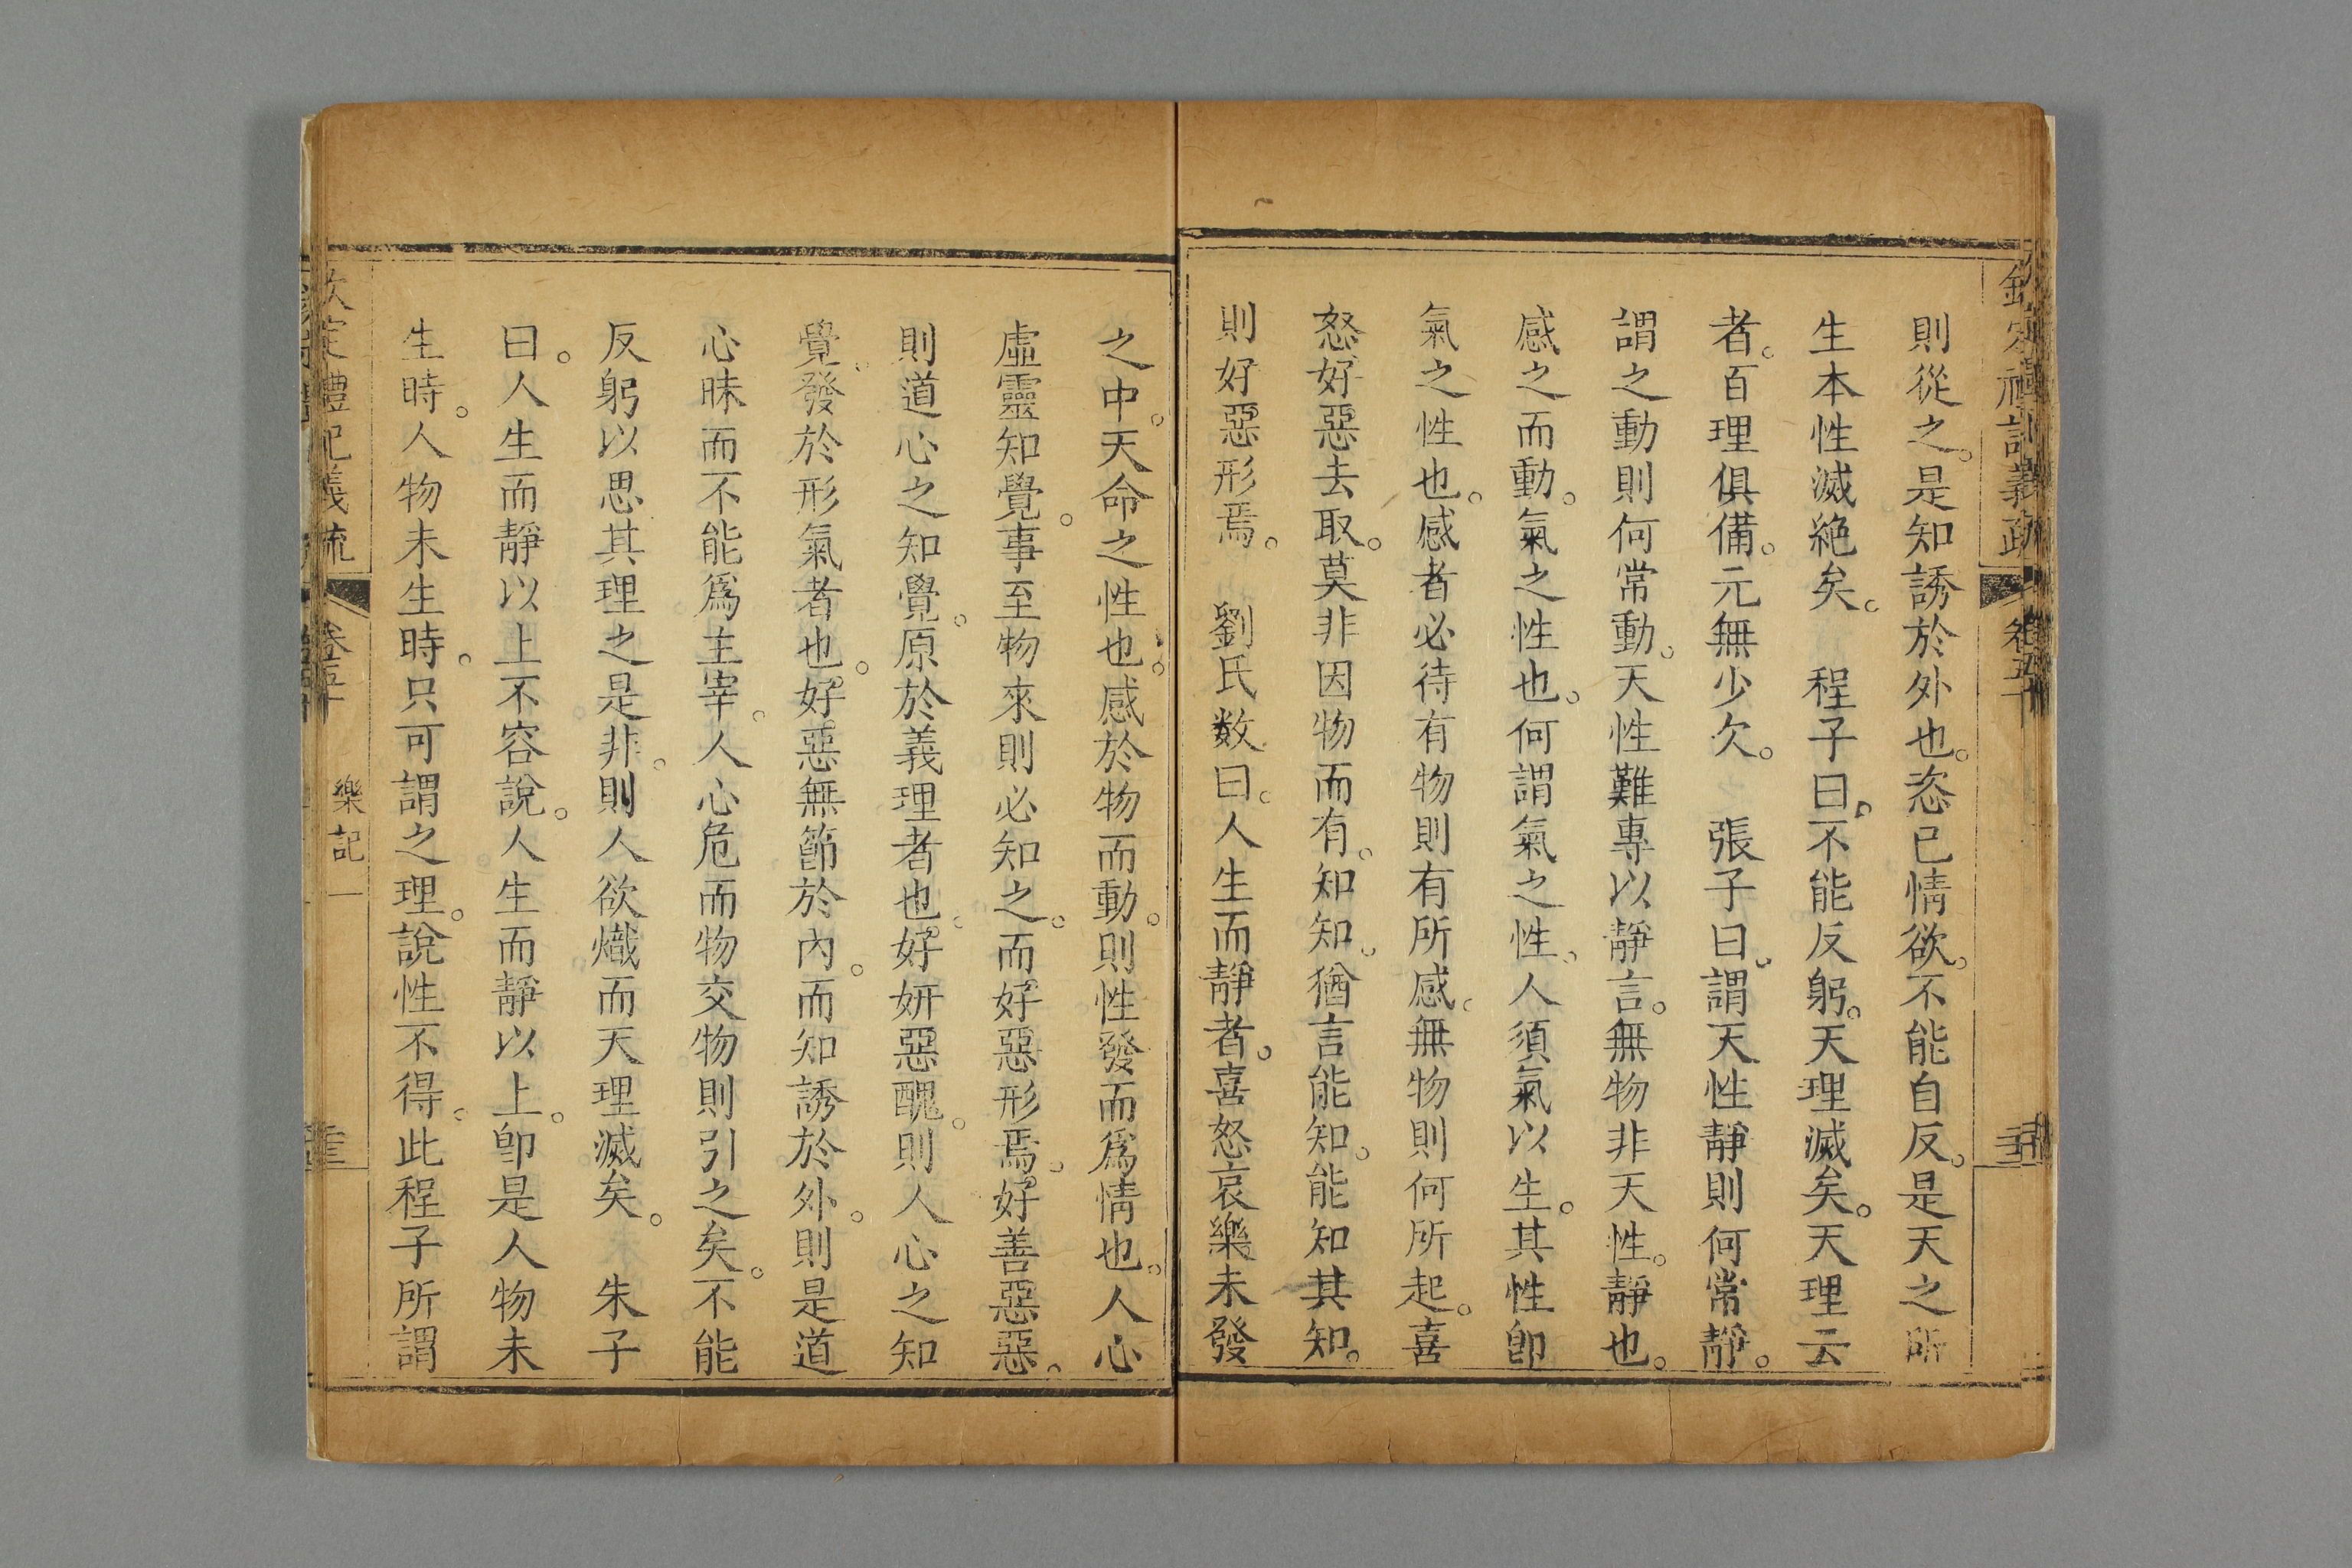 欽定禮記義疏 卷五十
則從之。是知誘於外也。恣已情欲。不能自反。是天之所
生本性滅絶矣。 程子曰。不能反躬。天理滅矣。天理云
者。百理俱備。元無少欠。 張子曰。謂天性靜則何常靜。
謂之動則何常動。天性難專以靜言。無物非天性。靜也。
感之而動。氣之性也。何謂氣之性。人須氣以生。其性卽
氣之性也。感者必待有物則有所感。無物則何所起。喜
怒好惡去取。莫非因物而有。知知。猶言能知。能知其知。
則好惡形焉。 劉氏数曰。人生而靜者。喜怒哀樂未發
之中。天命之性也。感於物而動。則性發而爲情也。人心
虛靈知覺。事至物來則必知之。而好惡形焉。好善惡惡。
則道心之知覺。原於義理者也。好妍惡醜。則人心之知
覺。發於形氣者也。好惡無節於內。而知誘於外。則是道
心昧而不能爲主宰。人心危而物交物則引之矣。不能
反躬以思其理之是非。則人欲熾而天理滅矣。 朱子
曰。人生而靜以上不容說。人生而靜以上。卽是人物未
生時。人物未生時。只可謂之理。說性不得。此程子所謂
欽定禮記義疏 卷五十 樂記一